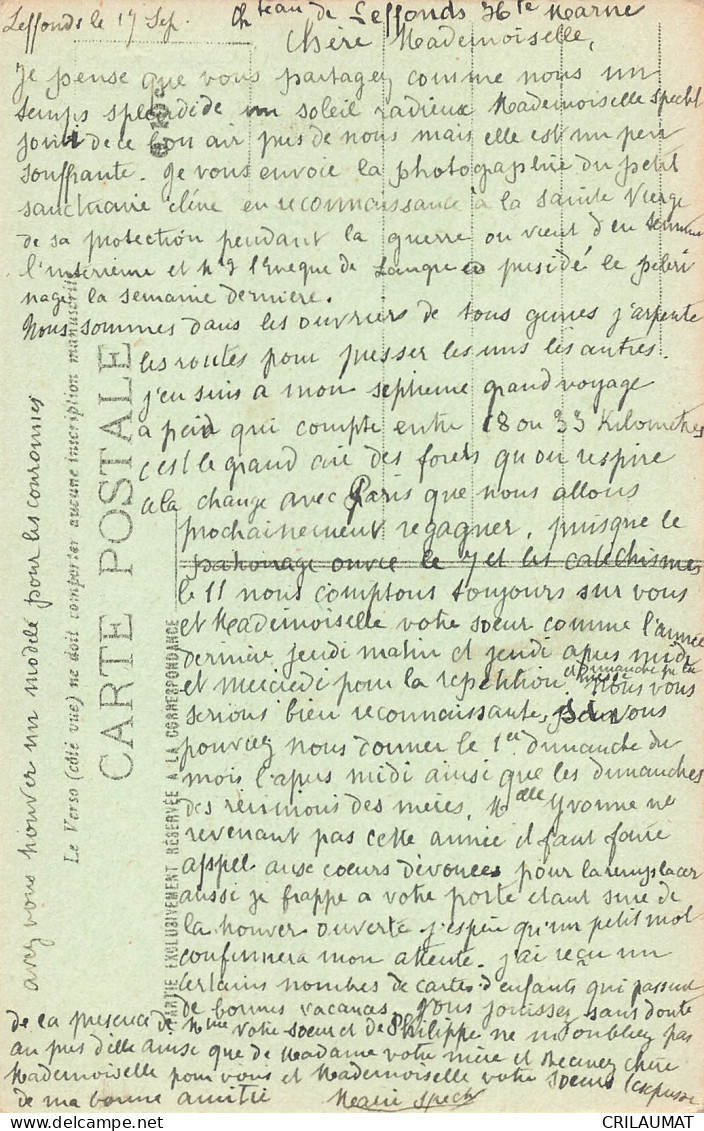 Leffonds le 17 Sep. Chteau de Leffonds Hte Marne
Chère Mademoiselle,
Je pense que vous partagez comme nous un
temps splendide un soleil radieux Mademoiselle Specht
jouit de ce bon air près de nous mais elle est un peu
souffrante. Je vous envoie la photographie du petit
sanctuaire élévé en reconnaissance à la Sainte Vierge
de sa protection pendant la guerre on vient d'en terminer
l'intérieure et Mgr l'Eveque de Langres a présidé le pèleri
nage la semaine dernière.
Nous sommes dans les ouvriers de tous genres j'arpente
les routes pour presser les uns les autres.
j'en suis à mon septieme grand voyage
a pied qui compte entre 18 ou 33 Kilomètres
c'est le grand air des forets qu'on respire
cela change avec Paris que nous allons
prochainement regagner, puisque le
patronage ouvre le 7 et les catéchismes
le 11 nous comptons toujours sur vous
et Mademoiselle votre soeur comme l'année
dernière jeudi matin et jeudi après midi
et mercredi pour la repetition. et Dimanche
Nous vous
serions bien reconnaissante, si vous
pouviez nous donner le 1er dimanche du
mois l'après midi ainsi que les dimanches
des réunions des mères, Melle Yvonne ne
revenant pas cette année il faut faire
appel aux coeurs dévouées pour la remplacer
aussi je frappe à votre porte etant sure de
la trouver ouverte j'espère qu'un petit mot
confirmera mon attente. j'ai reçu un
certains nombres de cartes d'enfants qui passent
de bonnes vacances. Vous jouissez sans doute
de la présence de Mme votre soeur et de Philippe ne m'oubliez pas
au près d'elle ainsi que de Madame votre mère et recevez chère
Mademoiselle pour vous et Mademoiselle votre soeur l'expresse
de ma bonne amitié Marie Specht
avez vous trouver un modèle pour les couronnes
Le Verso (côté vue) ne doit comporter aucune inscription manuscrite
CARTE POSTALE
PARTIE EXCLUSIVEMENT RÉSERVÉE A LA CORRESPONDANCE
delcampe.net
CRILAUMAT